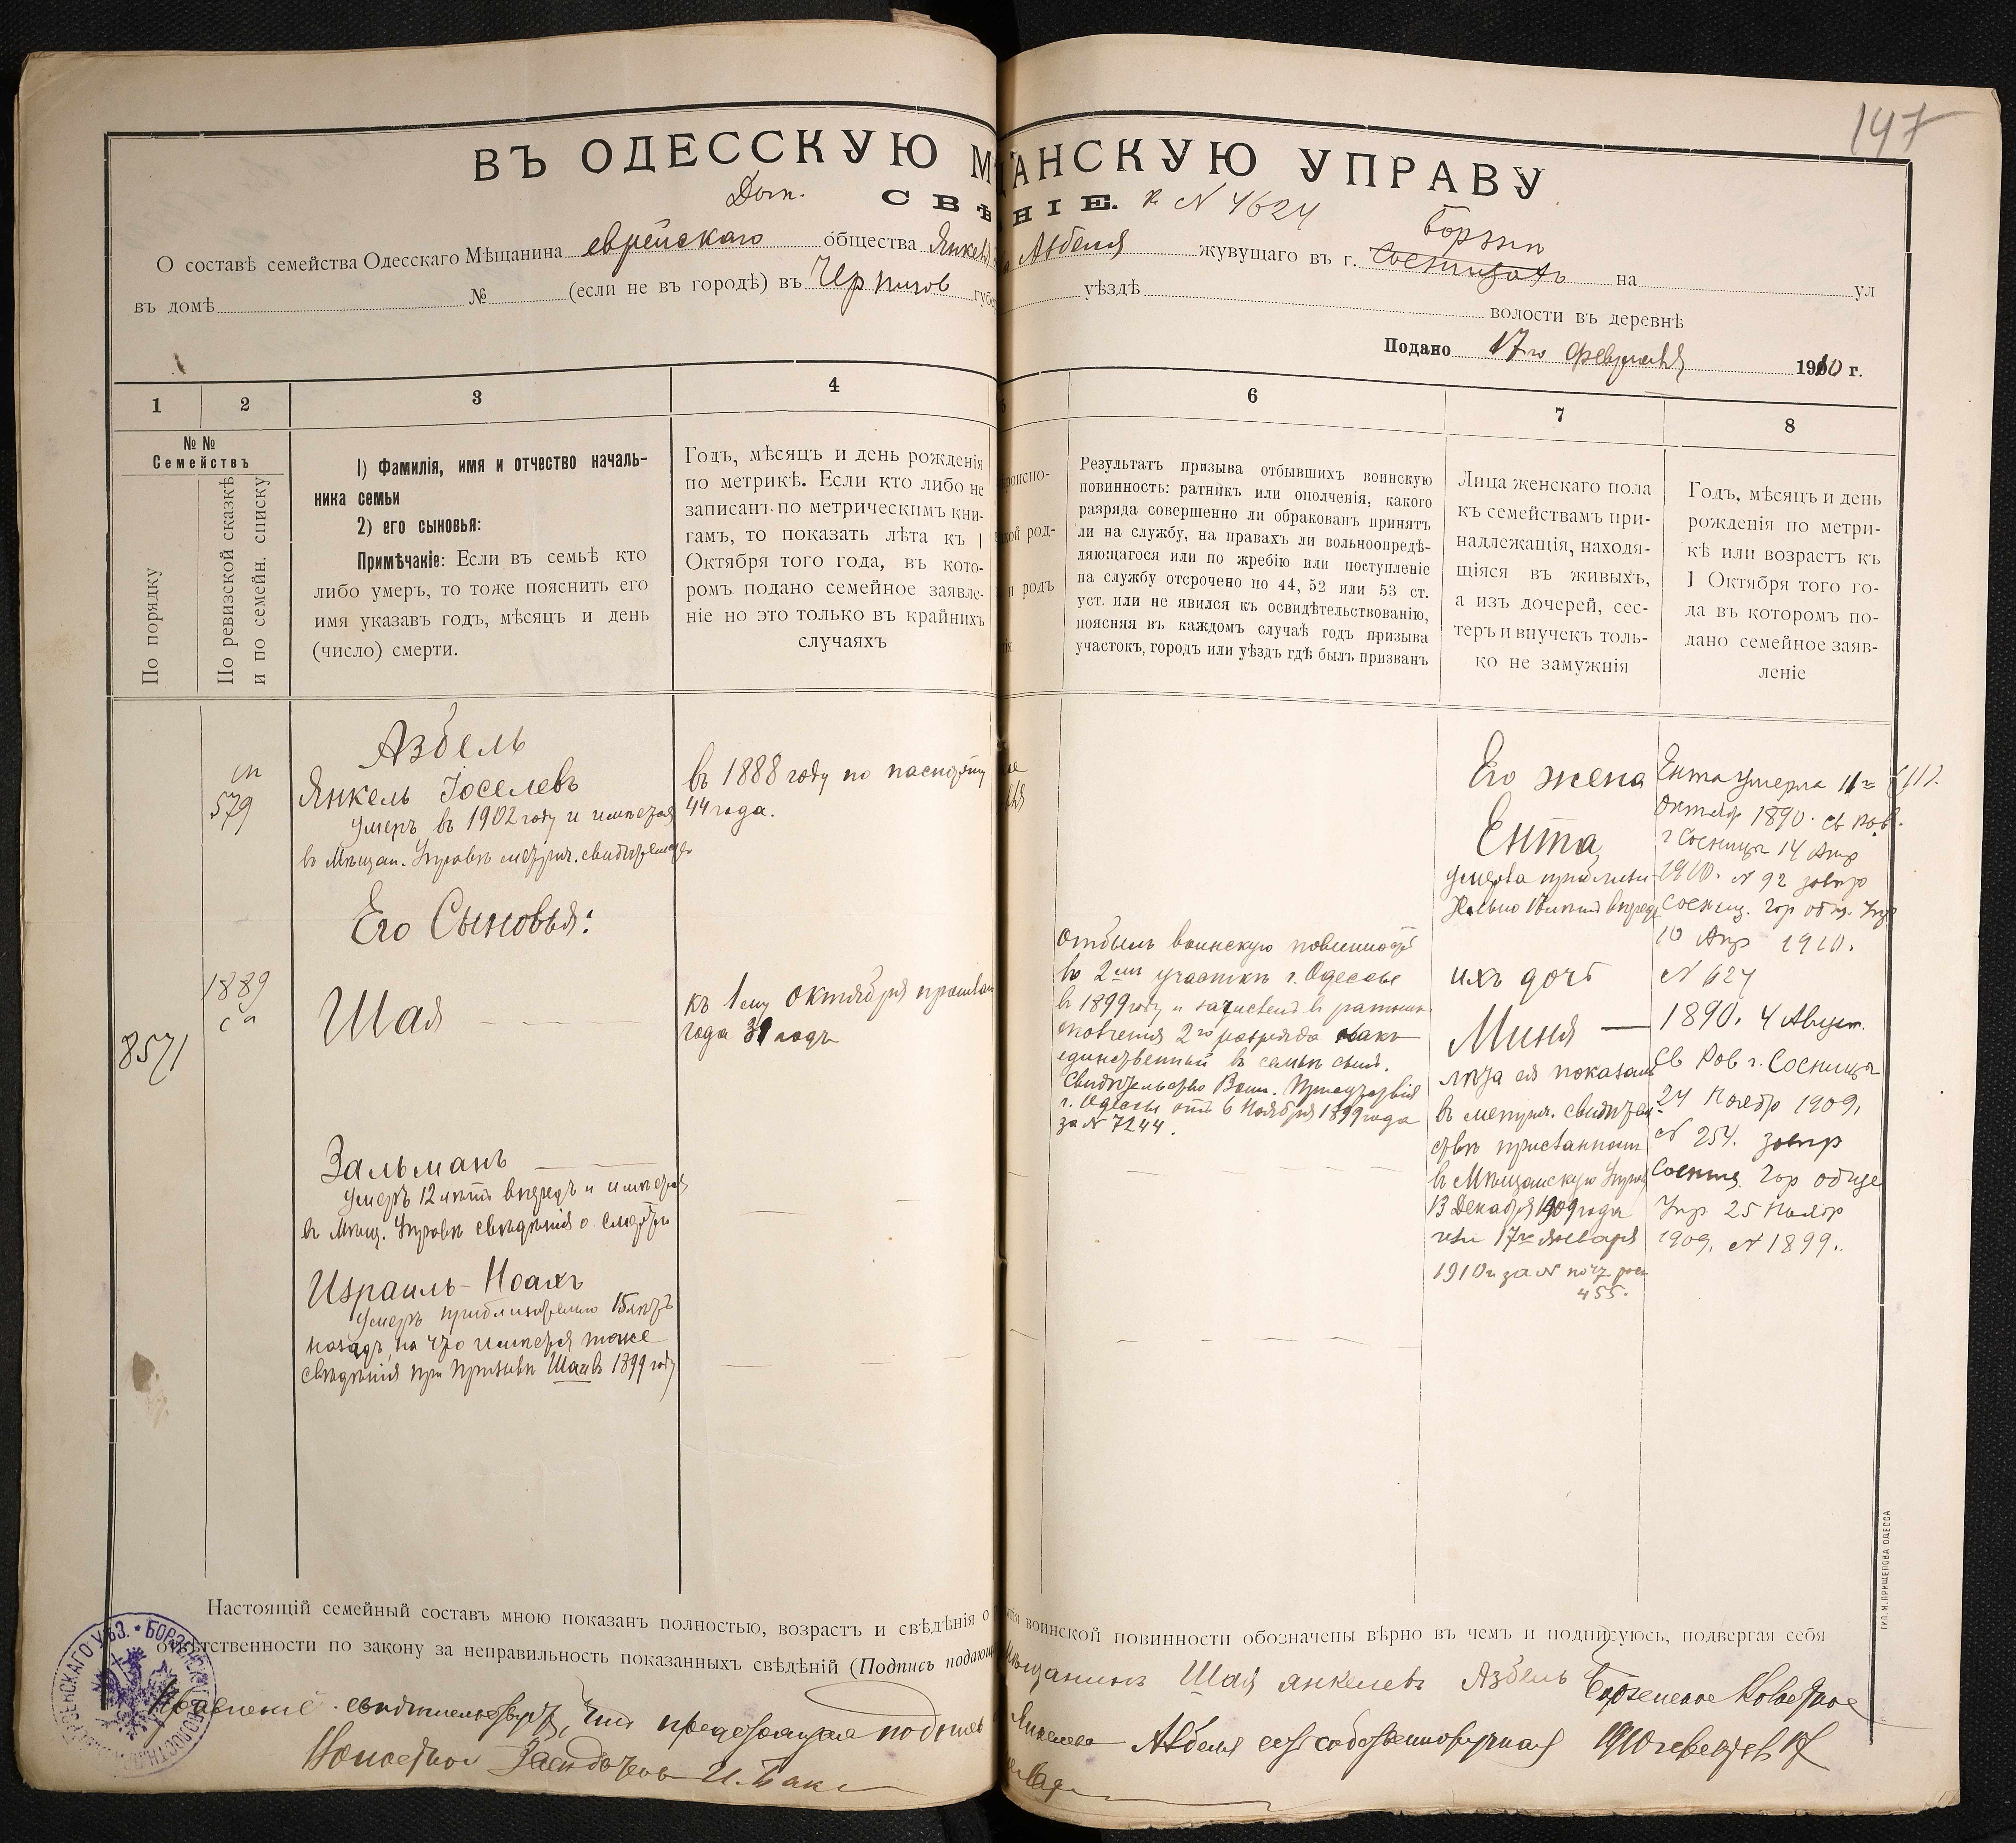 147
ВЪ ОДЕССКУЮ М АНСКУЮ УПРАВУ
Доп. СВѢ НІЕ. к № 4624
О составѣ семейства Одесскаго Мѣщанина еврейскаго общества Янкел Азбеля жувущаго въ г. Борзнѣ на ул
въ домѣ № (если не въ городѣ) въ Чернигов губе уѣздѣ волости въ деревнѣ
Подано 17го февраля 1910 г.
1 2 3 4 6 7 8
№№ Семействъ
По порядку
По ревизской сказкѣ и по семейн. списку
1) Фамилія, имя и отчество началь-
ника семьи
2) его сыновья:
Примѣчакіе: Если въ семьѣ кто
либо умер, то тоже пояснить его
имя указавъ годъ, мѣсяцъ и день
(число) смерти.
Годъ, мѣсяцъ и день рожденія
по метрикѣ. Если кто либо не
записанъ по метрическимъ кни-
гамъ, то показать лѣта къ 1
Октября того года, въ кото-
ромъ подано семейное заявле-
ніе но это только въ крайнихъ
случаяхъ
роиспо-
кой род-
и родъ
Результатъ призыва отбывшихъ воинскую
повинность: ратникъ или ополченія, какого
разряда совершенно ли обракованъ принятъ
ли на службу, на правахъ ли вольноопредѣ-
ляющагося или по жребію или поступленіе
на службу отсрочено по 44, 52 или 53 ст.
уст. или не явился къ освидѣтельствованію,
поясняя въ каждомъ случаѣ годъ призыва
участокъ, городъ или уѣздъ гдѣ былъ призванъ
Лица женскаго пола
къ семействамъ при-
надлежащія, находя-
щіяся въ живыхъ,
а изъ дочерей, сес-
теръ и внучекъ толь-
ко не замужнія
Годъ, мѣсяцъ и день
рожденія по метри-
кѣ или возрастъ къ
1 Октября того го-
да въ которомъ по-
дано семейное заяв-
леніе
сп
579
1889
са
8571
Азбель
Янкель Іоселевъ
умеръ въ 1902 году и имѣется
въ Мѣщан. Управѣ метрич. свидѣтельство
Его Сыновья:
Шая
Зальманъ
умеръ 12 лѣтъ впередъ и имѣется
въ Мѣщ. Управѣ свѣдѣнія о смерти
Израиль-Ноахъ
умеръ приблизительно 15 лѣтъ
назадъ, на что имѣется тоже
свѣдѣнія при призывѣ Шаи въ 1899 году
въ 1888 году по паспорту
44 года.
къ 1ему октября прошлаго
года 31 годъ
отбылъ воинскую повинность
въ 2мъ участкѣ г. Одессы
въ 1899 году и зачисленъ въ ратники
ополченія 2го разряда какъ
единственный въ семьѣ сынъ.
Свидѣтельство Воин. Присутствія
г. Одессы отъ 6 Ноября 1899 года
за № 7244.
Его жена
Ента
умерла приблизи-
тельно лѣтъ впередъ
ихъ дочь
Миня
лѣта ея показаны
въ метрич. свидѣтель-
ствѣ присланномъ
въ Мѣщанскую Управу
13 Декабря 1909 года
или 17го января
1910 г за № почт. рос.
455.
Ента умерла 11го
октябр 1890. Св Рав.
г Сосницы 14 Апр
1910. № 92 завѣр
Сосниц. Гор общ. Упр
10 Апр 1910.
№ 624
1890. 4 Август.
Св Рав г. Сосницы
24 Ноябр 1909.
№ 254. завѣр
Сосниц. Гор обще
Упр 25 Ноябр
1909. № 1899.
ТИП. М. ПРИЩЕПОВА ОДЕССА
Настоящій семейный составъ мною показанъ полностью, возрастъ и свѣдѣнія о воинской повинности обозначены вѣрно въ чемъ и подписуюсь, подвергая себя
отвѣтственности по закону за неправильность показанныхъ свѣдѣній (Подпись подающ Мѣщанинъ Шая Янкелевъ Азбель
Правленіе свидѣтельствуетъ, что предстоящая подпись Янкелева Азбеля есть собственноручная 1910 г февраля 17